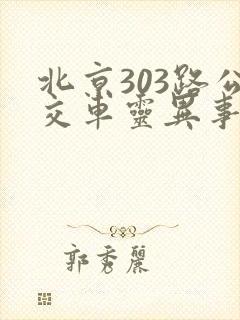 北京303路公
交車靈異事
郭秀麗